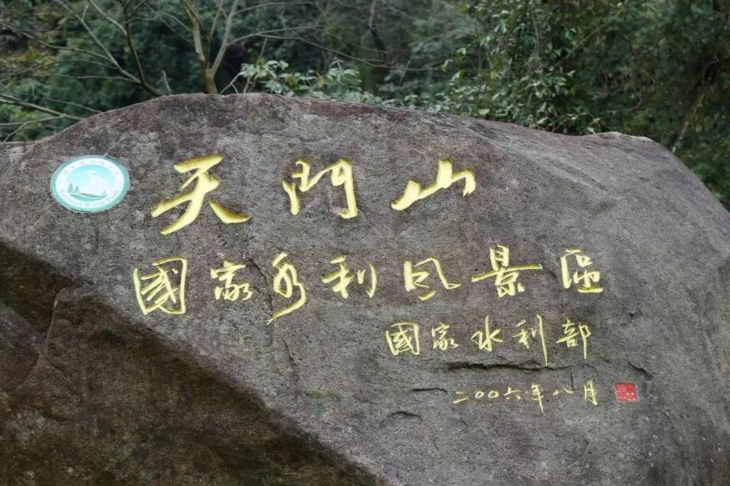 天门山
國家水利风景區
國家水利部
二００六年八月